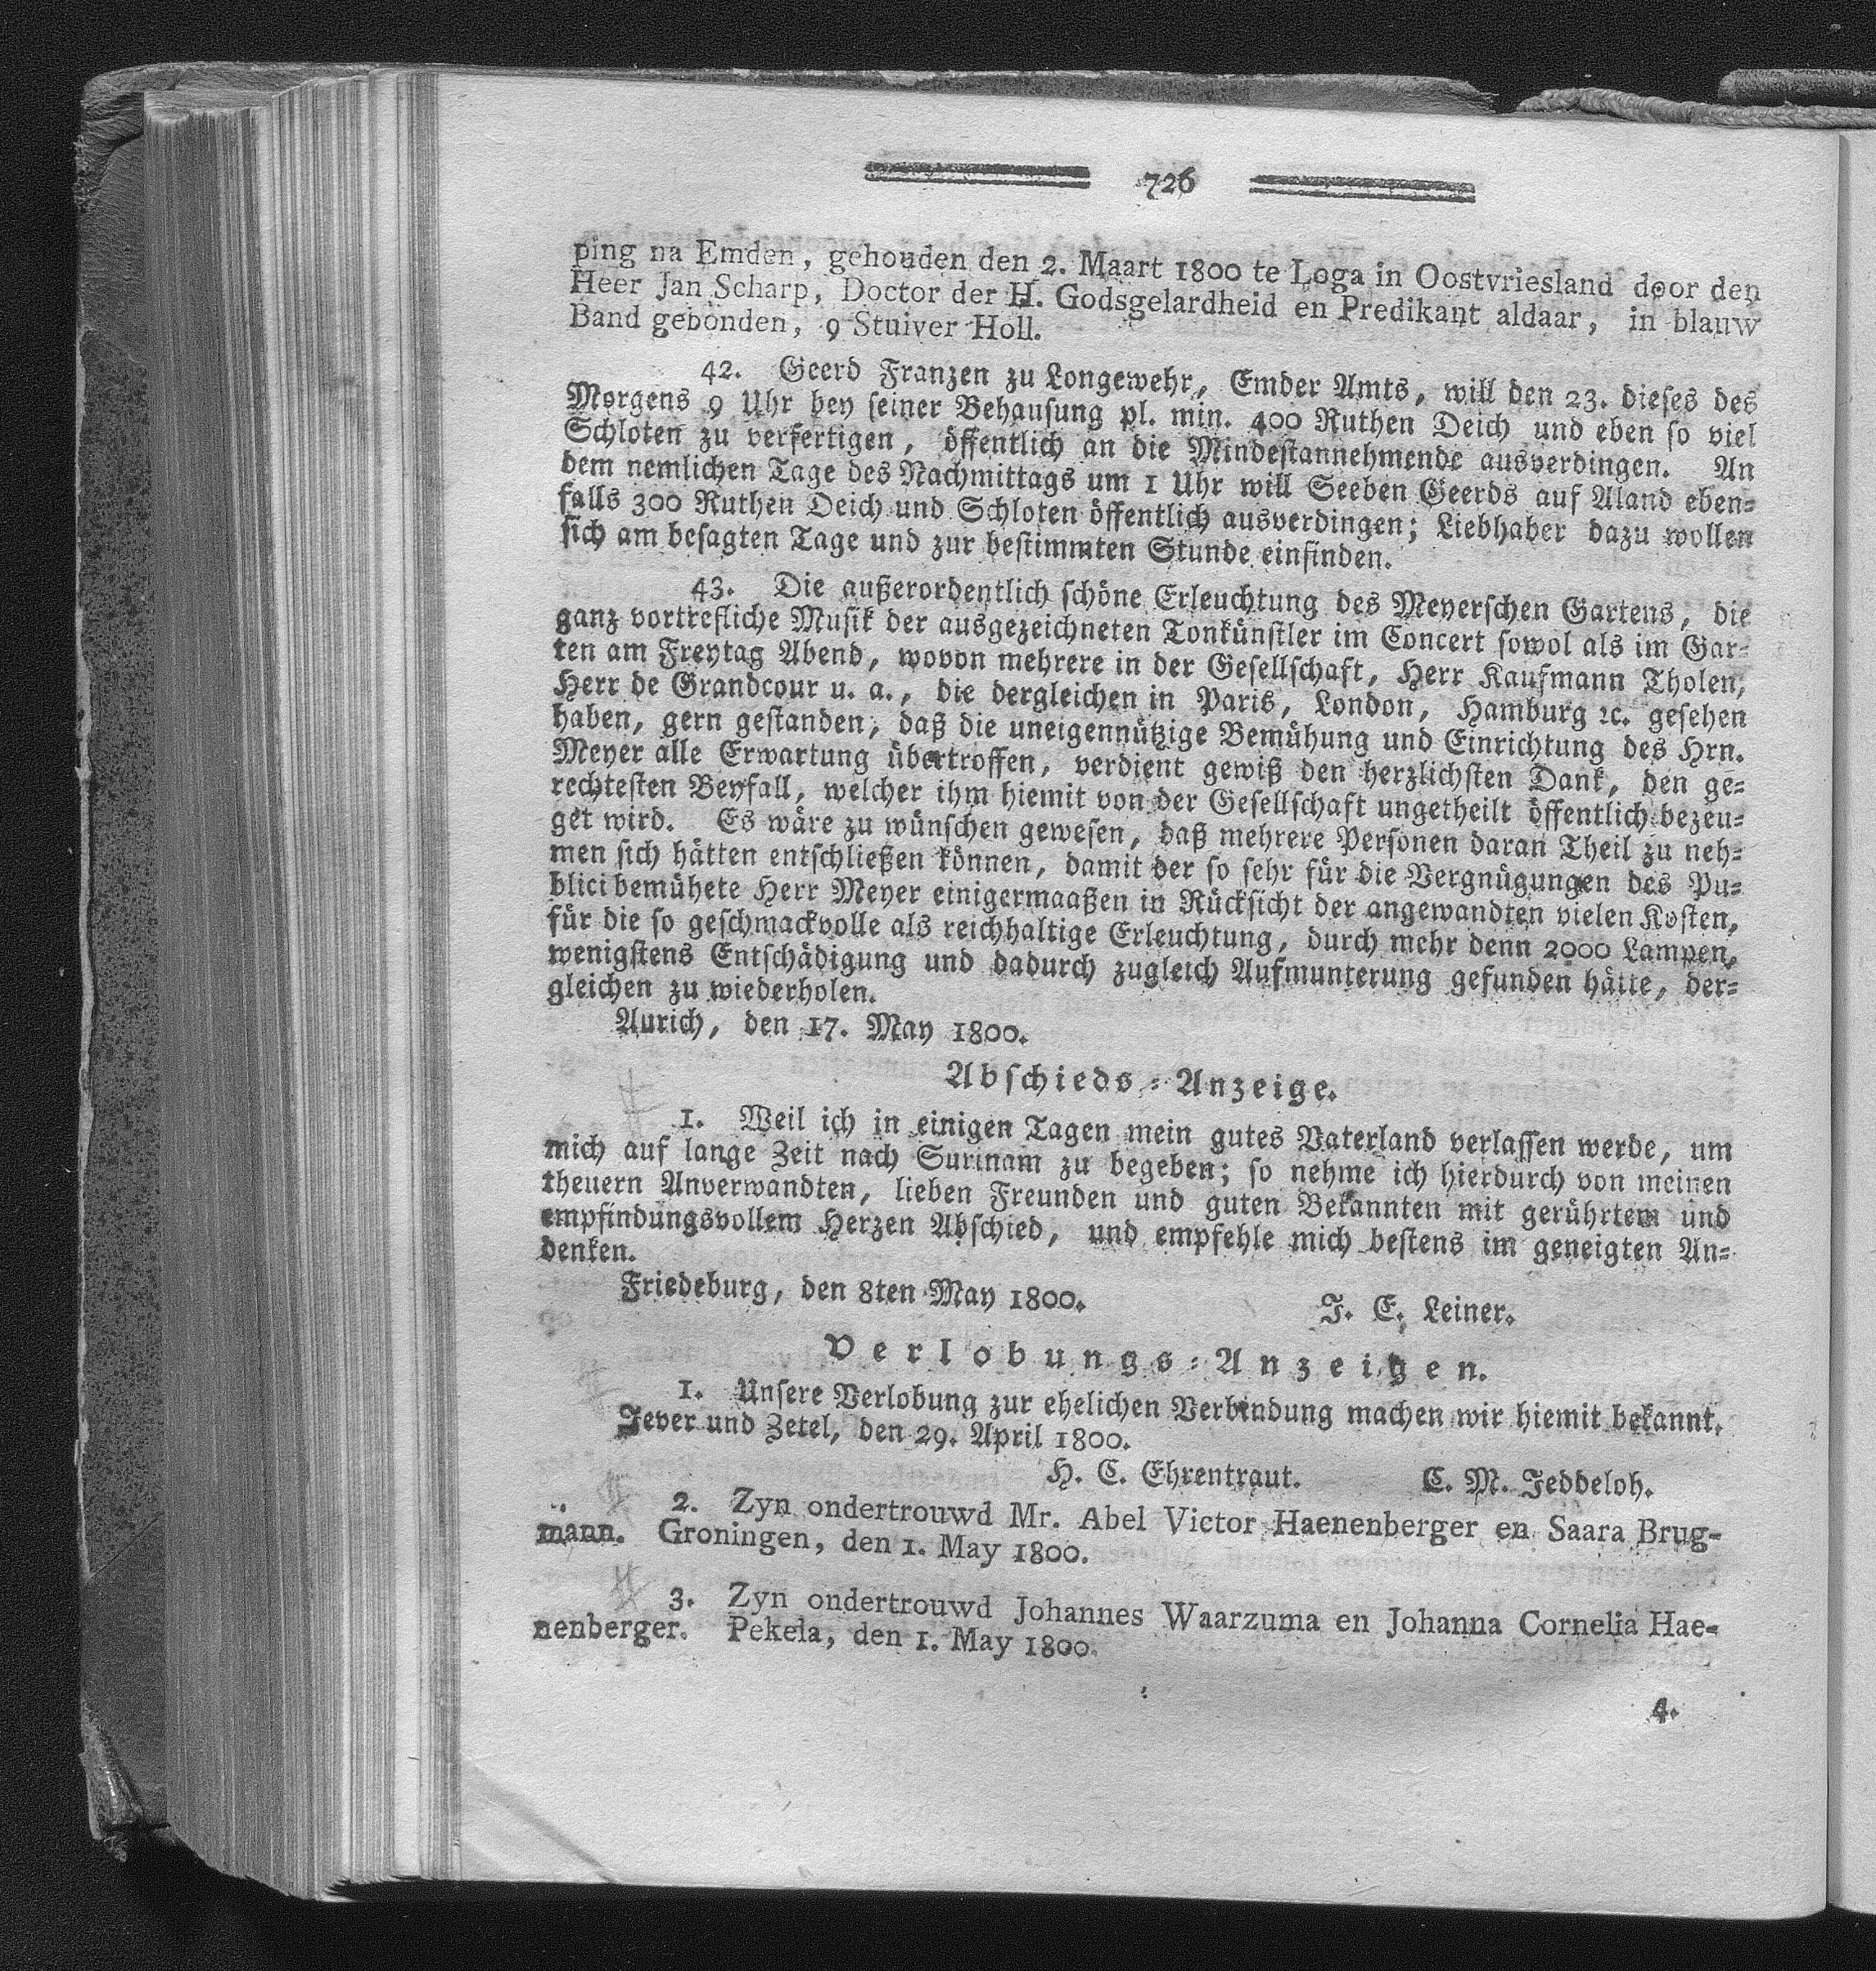 726
ping na Emden, gehouden den 2. Maart 1800 te Loga in Oostvriesland door den
Heer Jan Scharp, Doctor der H. Godsgelardheid en Predikant aldaar, in blauw
Band gebonden, 9 Stuiver Holl.
42. Geerd Franzen zu Longewehr, Emder Amts, will den 23. dieses des
Morgens 9 Uhr bey seiner Behausung pl. min. 400 Ruthen Deich und eben so viel
Schloten zu verfertigen, öffentlich an die Mindestannehmende ausverdingen. An
dem nemlichen Tage des Nachmittags um 1 Uhr will Seeben Geerds auf Aland eben=
falls 300 Ruthen Deich und Schloten öffentlich ausverdingen; Liebhaber dazu wollen
sich am besagten Tage und zur bestimmten Stunde einfinden.
43. Die außerordentlich schöne Erleuchtung des Meyerschen Gartens, die
ganz vortrefliche Musik der ausgezeichneten Tonkünstler im Concert sowol als im Gar=
ten am Freytag Abend, wovon mehrere in der Gesellschaft, Herr Kaufmann Tholen,
Herr de Grandcour u. a., die dergleichen in Paris, London, Hamburg ꝛc. gesehen
haben, gern gestanden, daß die uneigennützige Bemühung und Einrichtung des Hrn.
Meyer alle Erwartung übertroffen, verdient gewiß den herzlichsten Dank, den ge=
rechtesten Beyfall, welcher ihm hiemit von der Gesellschaft ungetheilt öffentlich bezeu=
get wird. Es wäre zu wünschen gewesen, daß mehrere Personen daran Theil zu neh=
men sich hätten entschließen können, damit der so sehr für die Vergnügungen des Pu=
blici bemühete Herr Meyer einigermaaßen in Rücksicht der angewandten vielen Kosten,
für die so geschmackvolle als reichhaltige Erleuchtung, durch mehr denn 2000 Lampen,
wenigstens Entschädigung und dadurch zugleich Aufmunterung gefunden hätte, der=
gleichen zu wiederholen.
Aurich, den 17. May 1800.
Abschieds=Anzeige.
1. Weil ich in einigen Tagen mein gutes Vaterland verlassen werde, um
mich auf lange Zeit nach Surinam zu begeben; so nehme ich hierdurch von meinen
theuern Anverwandten, lieben Freunden und guten Bekannten mit gerührtem und
empfindungsvollem Herzen Abschied, und empfehle mich bestens im geneigten An=
denken.
Friedeburg, den 8ten May 1800. J. E. Leiner.
Verlobungs=Anzeigen.
1. Unsere Verlobung zur ehelichen Verbindung machen wir hiemit bekannt.
Jever und Zetel, den 29. April 1800.
H. C. Ehrentraut. C. M. Jeddeloh.
2. Zyn ondertrouwd Mr. Abel Victor Haenenberger en Saara Brug-
mann. Groningen, den 1. May 1800.
3. Zyn ondertrouwd Johannes Waarzuma en Johanna Cornelia Hae-
nenberger. Pekela, den 1. May 1800.
4.